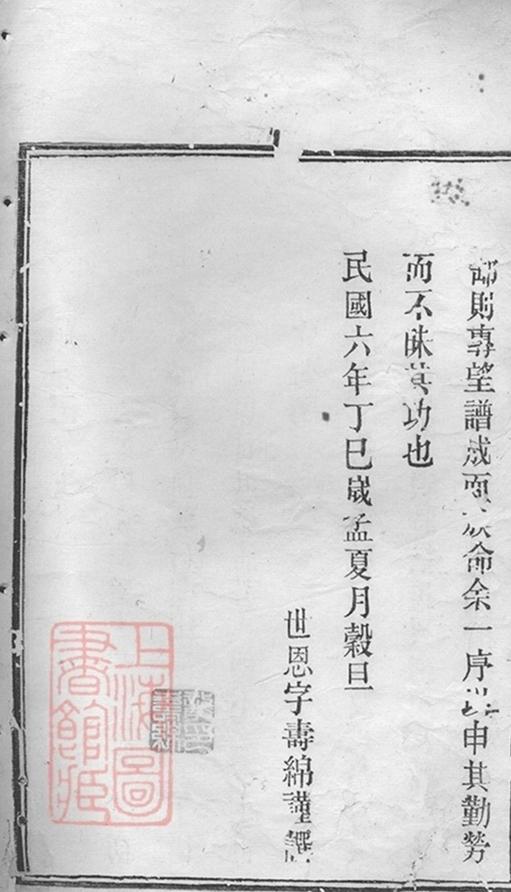 則專望譜成而命余一序以申其勤勞
而不昧其功也
民國六年丁巳歲孟夏月穀旦
世恩字壽綿謹譔
上海圖書館藏